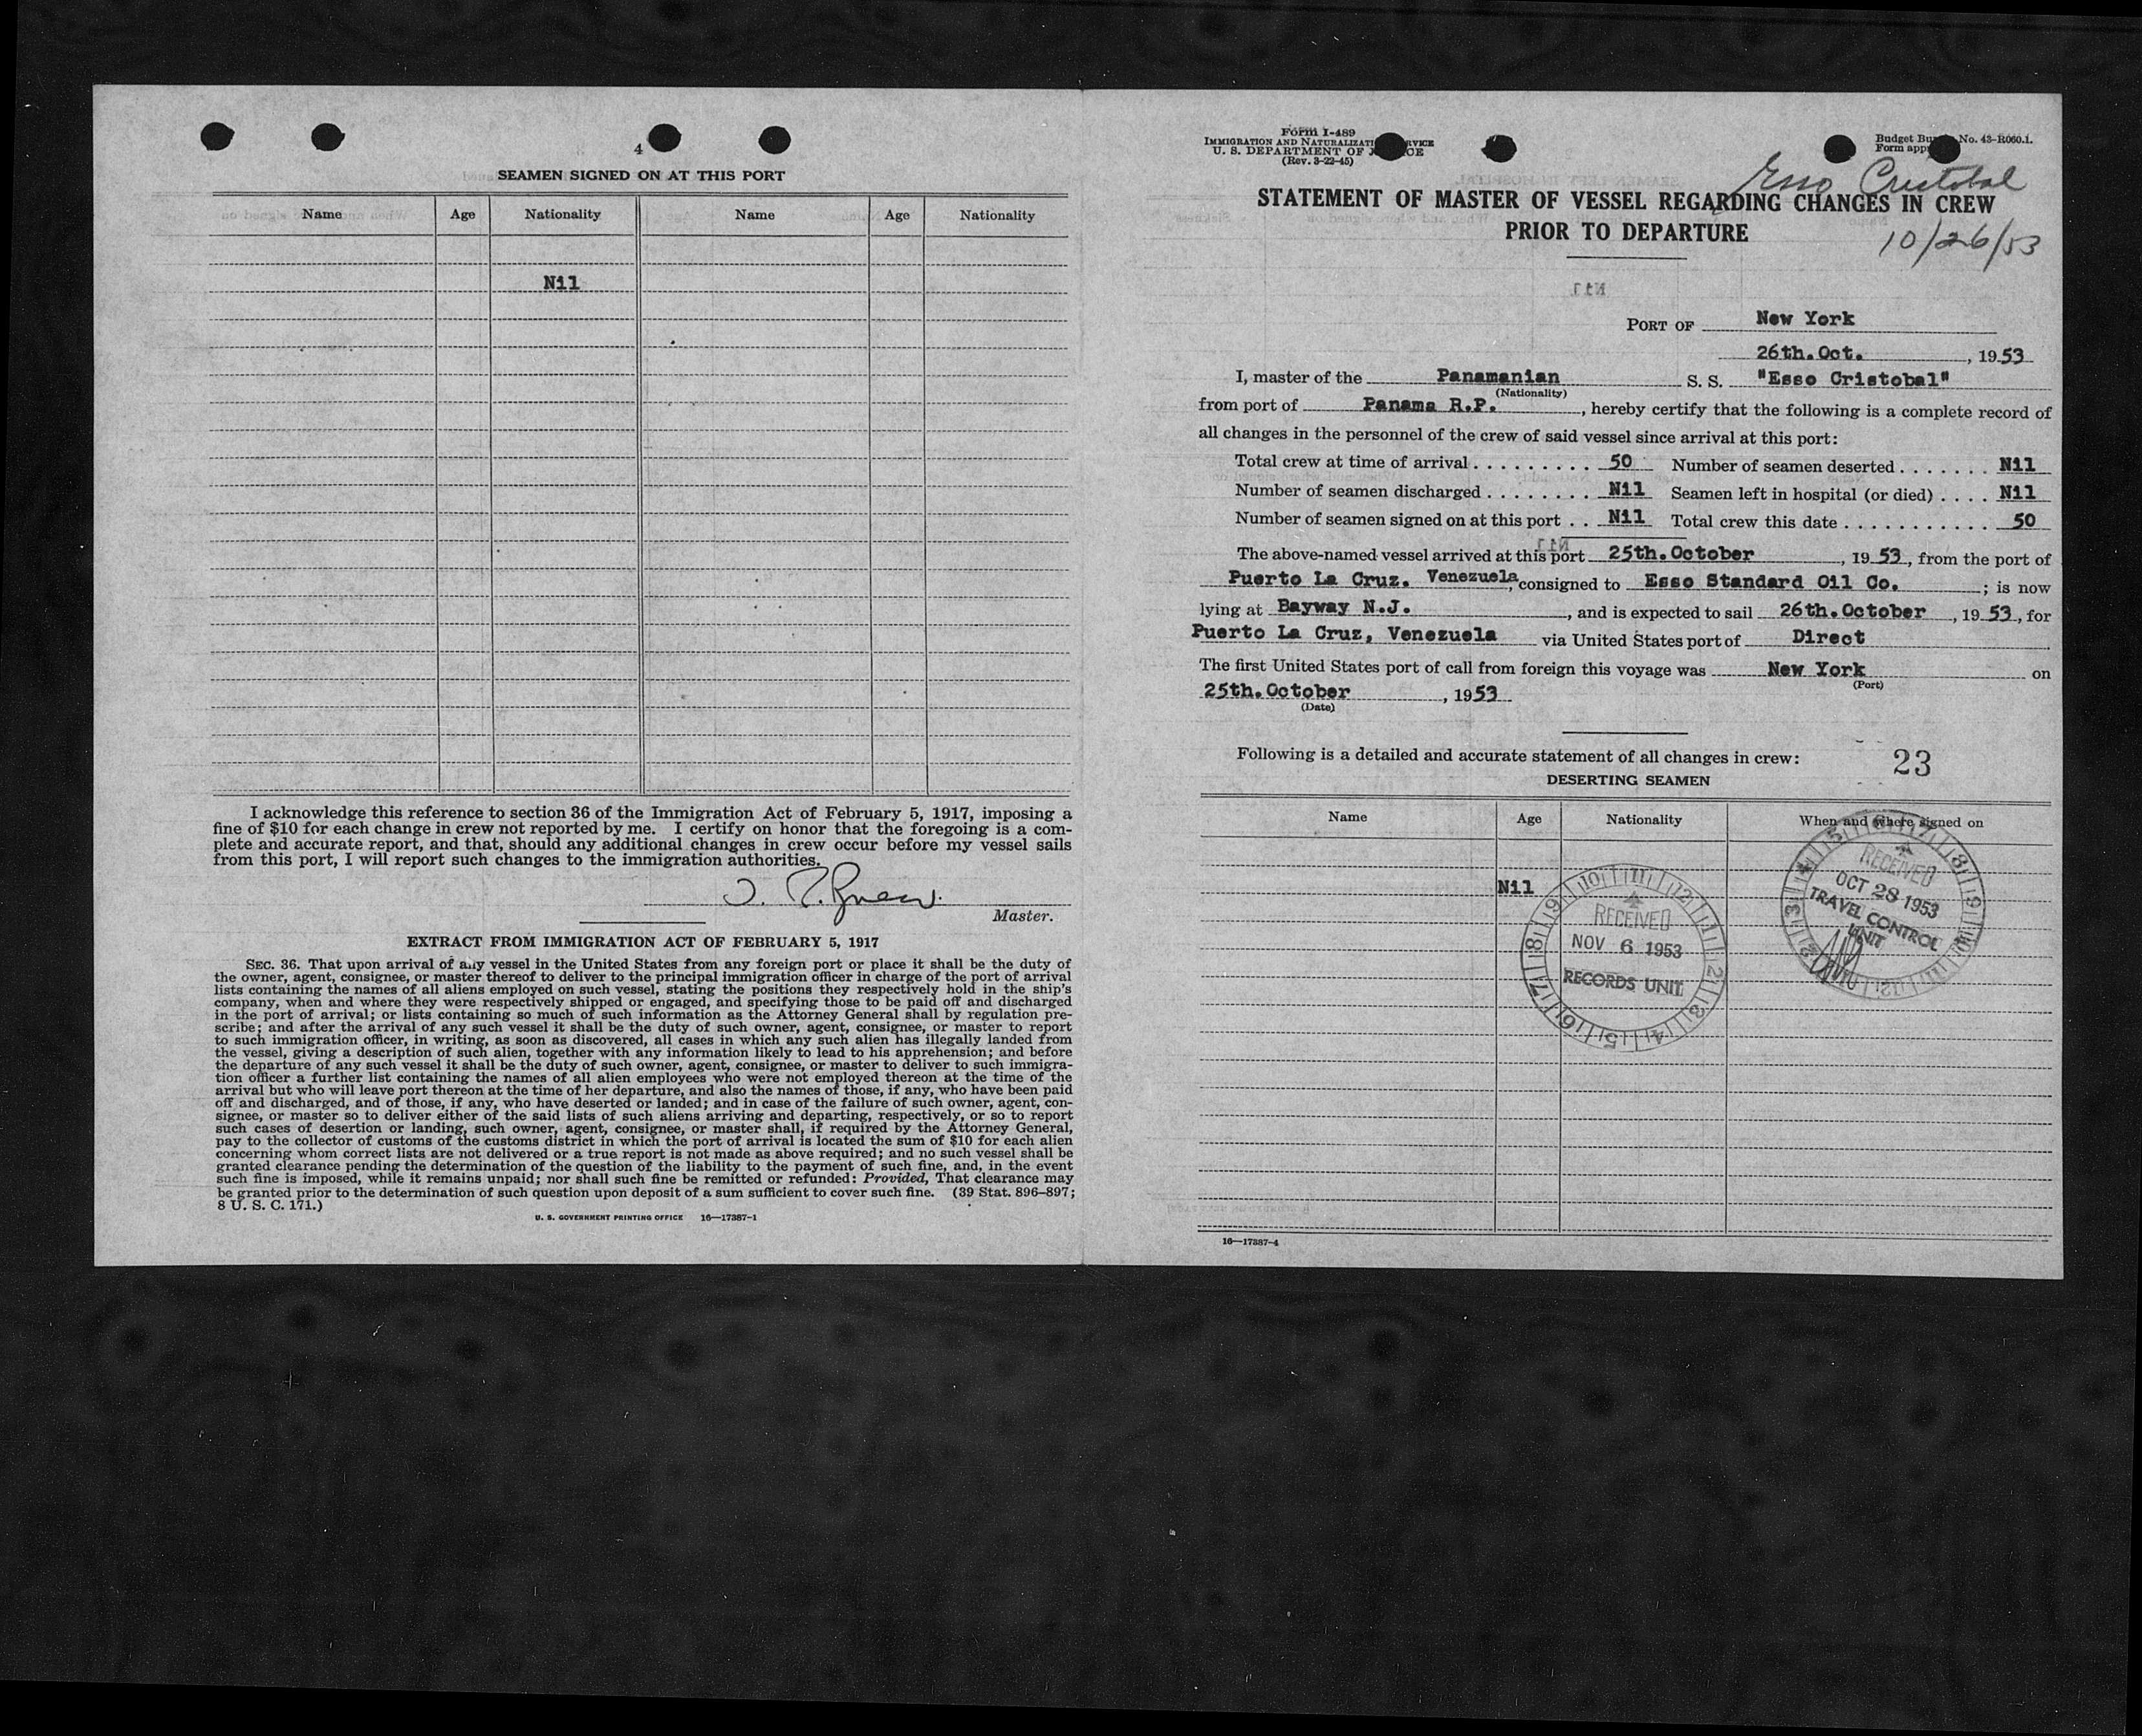 4
SEAMEN SIGNED ON AT THIS PORT
Name Age Nationality Name Age Nationality
Nil
I acknowledge this reference to section 36 of the Immigration Act of February 5, 1917, imposing a
fine of $10 for each change in crew not reported by me. I certify on honor that the foregoing is a com-
plete and accurate report, and that, should any additional changes in crew occur before my vessel sails
from this port, I will report such changes to the immigration authorities.
Master.
EXTRACT FROM IMMIGRATION ACT OF FEBRUARY 5, 1917
SEC. 36. That upon arrival of any vessel in the United States from any foreign port or place it shall be the duty of
the owner, agent, consignee, or master thereof to deliver to the principal immigration officer in charge of the port of arrival
lists containing the names of all aliens employed on such vessel, stating the positions they respectively hold in the ship's
company, when and where they were respectively shipped or engaged, and specifying those to be paid off and discharged
in the port of arrival; or lists containing so much of such information as the Attorney General shall by regulation pre-
scribe; and after the arrival of any such vessel it shall be the duty of such owner, agent, consignee, or master to report
to such immigration officer, in writing, as soon as discovered, all cases in which any such alien has illegally landed from
the vessel, giving a description of such alien, together with any information likely to lead to his apprehension; and before
the departure of any such vessel it shall be the duty of such owner, agent, consignee, or master to deliver to such immigra-
tion officer a further list containing the names of all alien employees who were not employed thereon at the time of the
arrival but who will leave port thereon at the time of her departure, and also the names of those, if any, who have been paid
off and discharged, and of those, if any, who have deserted or landed; and in case of the failure of such owner, agent, con-
signee, or master so to deliver either of the said lists of such aliens arriving and departing, respectively, or so to report
such cases of desertion or landing, such owner, agent, consignee, or master shall, if required by the Attorney General,
pay to the collector of customs of the customs district in which the port of arrival is located the sum of $10 for each alien
concerning whom correct lists are not delivered or a true report is not made as above required; and no such vessel shall be
granted clearance pending the determination of the question of the liability to the payment of such fine, and, in the event
such fine is imposed, while it remains unpaid; nor shall such fine be remitted or refunded: Provided, That clearance may
be granted prior to the determination of such question upon deposit of a sum sufficient to cover such fine. (39 Stat. 896–897;
8 U. S. C. 171.)
U. S. GOVERNMENT PRINTING OFFICE 16—17387-1
Form I-489
IMMIGRATION AND
U. S. DEPARTMENT OF
(Rev. 3-22-45)
Budget No. 43-R060.1.
Form
Esso Cristobal
STATEMENT OF MASTER OF VESSEL REGARDING CHANGES IN CREW
PRIOR TO DEPARTURE
10/26/53
PORT OF New York
26th. Oct. , 1953
I, master of the Panamanian S. S. "Esso Cristobal"
(Nationality)
from port of Panama R.P. , hereby certify that the following is a complete record of
all changes in the personnel of the crew of said vessel since arrival at this port:
Total crew at time of arrival . . . . . . . . . 50 Number of seamen deserted . . . . . . . Nil
Number of seamen discharged . . . . . . . . Nil Seamen left in hospital (or died) . . . . Nil
Number of seamen signed on at this port . . Nil Total crew this date . . . . . . . . . . . . 50
The above-named vessel arrived at this port 25th. October , 1953, from the port of
Puerto La Cruz. Venezuela, consigned to Esso Standard Oil Co. ; is now
lying at Bayway N.J. , and is expected to sail 26th. October , 1953, for
Puerto La Cruz, Venezuela via United States port of Direct .
The first United States port of call from foreign this voyage was New York on
(Port)
25th. October , 1953
(Date)
Following is a detailed and accurate statement of all changes in crew:
23
DESERTING SEAMEN
Name Age Nationality When and where signed on
Nil
RECEIVED
OCT 28 1953
TRAVEL CONTROL
UNIT
RECEIVED
NOV 6 1953
RECORDS UNIT
16—17387-4